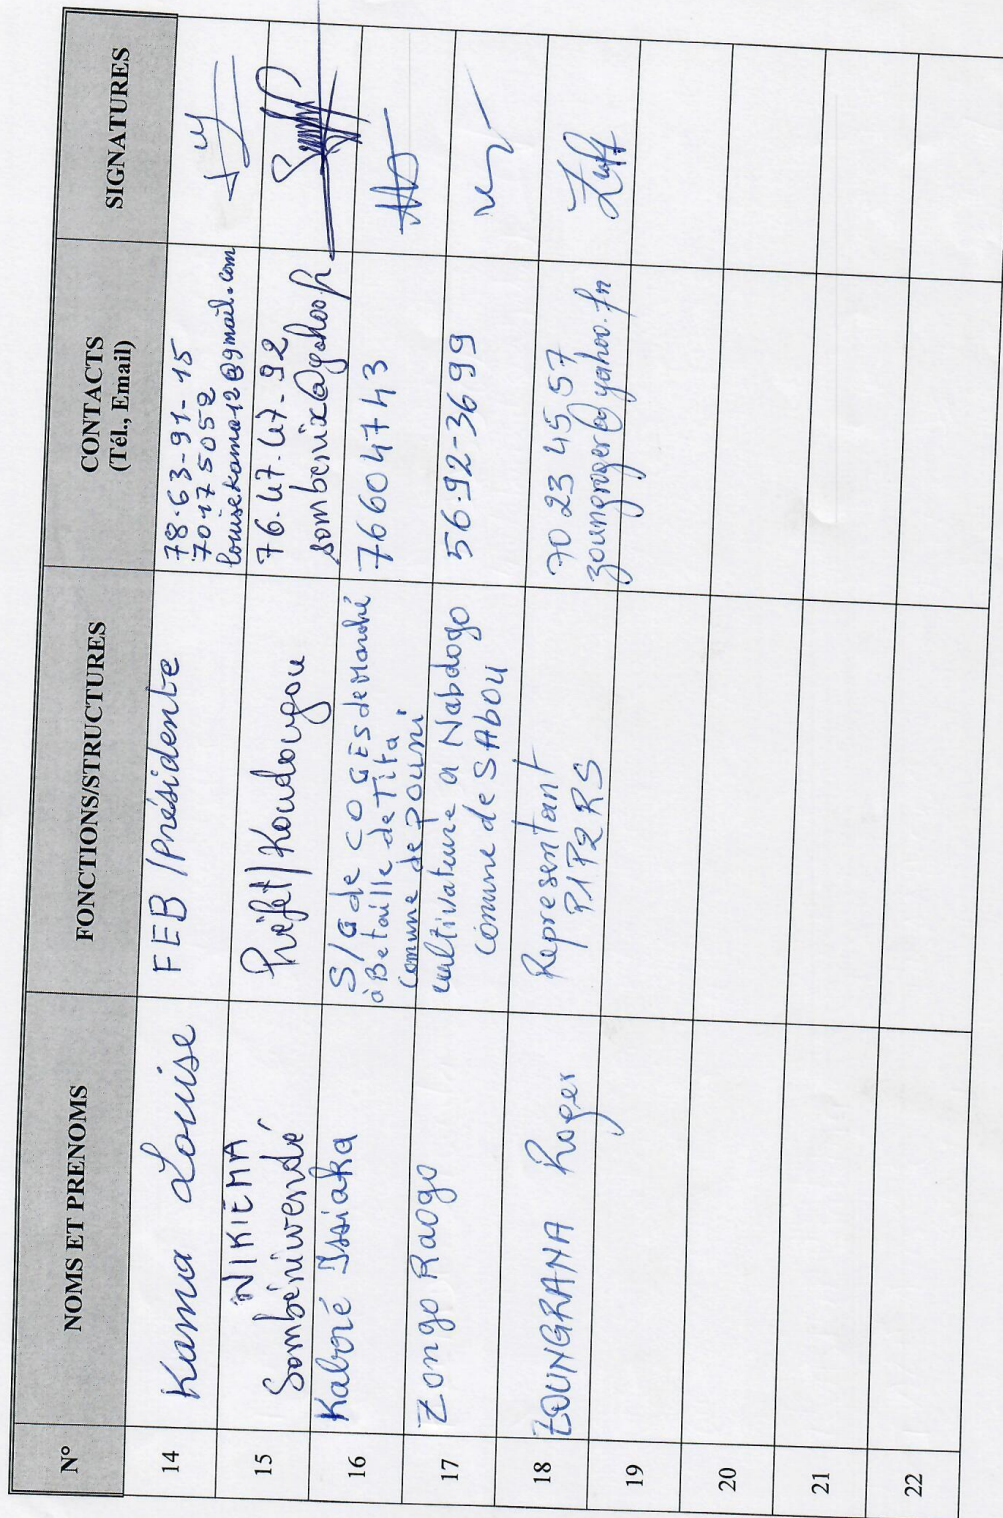 N° NOMS ET PRENOMS FONCTIONS/STRUCTURES CONTACTS SIGNATURES
(Tél., Email)
14 Kama Louise FEB/Présidente 78-63-91-15
70175052
louisekama12@gmail.com
15 NIKIEMA
Sombéniwendé
Préfet/Koudougou 76.47.47.92
sombenix@yahoo.fr
16 Kaboré Issiaka S/G de COGES demarché
à Betaille de Tita
Comune de Pouni
76604743
17 Zongo Raogo cultivature a Nabdogo
comune de SAbou
56-92-3699
18 ZOUNGRANA Roger Representant
P1P2RS
70 23 45 57
zoungroger@yahoo.fr
19
20
21
22